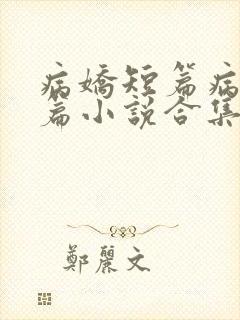 病嬌短篇病
篇小說合集
鄭麗文